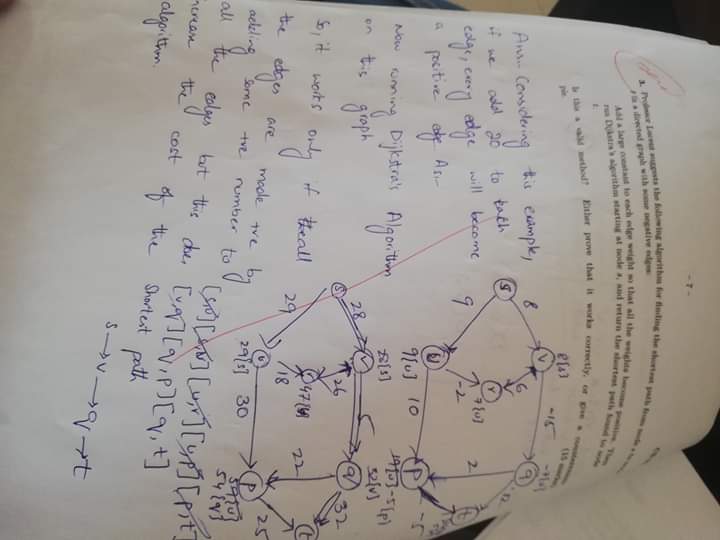 - 7 -
3. Professor Lorenz suggests the following algorithm for finding the shortest path from node
in a directed graph with some negative edges:
Add a large constant to each edge weight so that all the weights become positive. Then
run Dijkstra's algorithm starting at node s, and return the shortest path found to node
t.
Is this a valid method? Either prove that it works correctly, or give a
ple
Ans:- Considering this example,
if we add 20 to each
edge, every edge will become
a positive edge As:-
Now running Dijkstra's Algorithm
on this graph
So, it works only if all
the edges are made +ve by
adding some +ve number to
all the edges but this
increase the cost of the
algorithm.
s 8 v
9 6 -15
u -2 r 7[u] q
9[u] 10 2
p -5 t
s 28 v
29 26 5
u 18 r 47[u] q 32
29[s] 30 22
p 25 t
54[v]
[u,r] [u,p] [p,t]
[v,q] [q,p] [q,t]
Shortest path
s → v → q → t